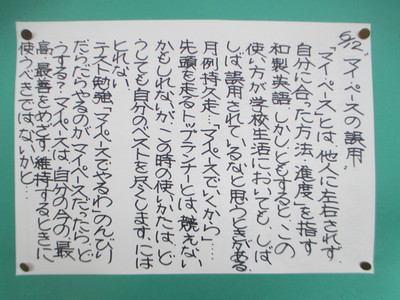 5/12 マイペースの誤用
「マイペース」とは、他人に左右されず、
自分に合った方法、進度」を指す
和製英語。しかしともすると、この
使い方が学校生活においても、しば
しば、誤用されているなと思うときがある。
月例持久走…「マイペースでいくから」……
先頭を走るトップランナーとは、競えない
かもしれないが、この時の使いかたは、ど
うしても自分のベストを尽しますには
とれない。
テスト勉強「マイペースでやるわ」のんびり
だらだらやるのがマイペースだったら、ど
うする？マイペースは、自分の今の最
高、最善をめざす、維持するときに
使うべきではないかと…